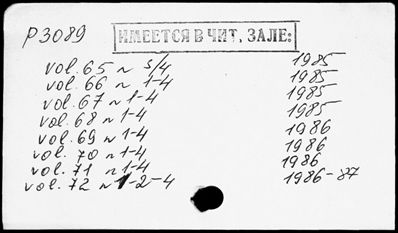 Р3089
ИМЕЕТСЯ В ЧИТ. ЗАЛЕ:
vol. 65 n 3/4 1985
vol. 66 n 1-4 1985
vol. 67 n 1-4 1985
vol. 68 n 1-4 1985
vol. 69 n 1-4 1986
vol. 70 n 1-4 1986
vol. 71 n 1-4 1986
vol. 72 n 1-2-4 1986-87